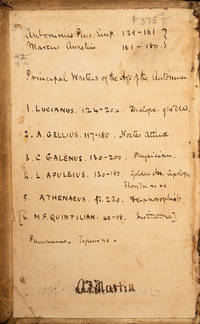 $375
Antoninus Pius, Emp. 138-161 }
Marcus Aurelius 161-180 }
#2
Principal Writers of the Age of the Antonines.
1. LUCIANUS. 124-200. Dialogues of the Dead.
2. A. GELLIUS. 117-180. Noctes Atticæ.
3. C GALENUS. 130-200. Physician.
4. L. APULEIUS. 130-180. Golden Ass, Apology,
Florida
5. ATHENAEUS. fl. 230. Deipnosophistæ
[6. M.F. QUINTILIAN. 40-118. Institutions]
Pausanias.
A. T. Martin